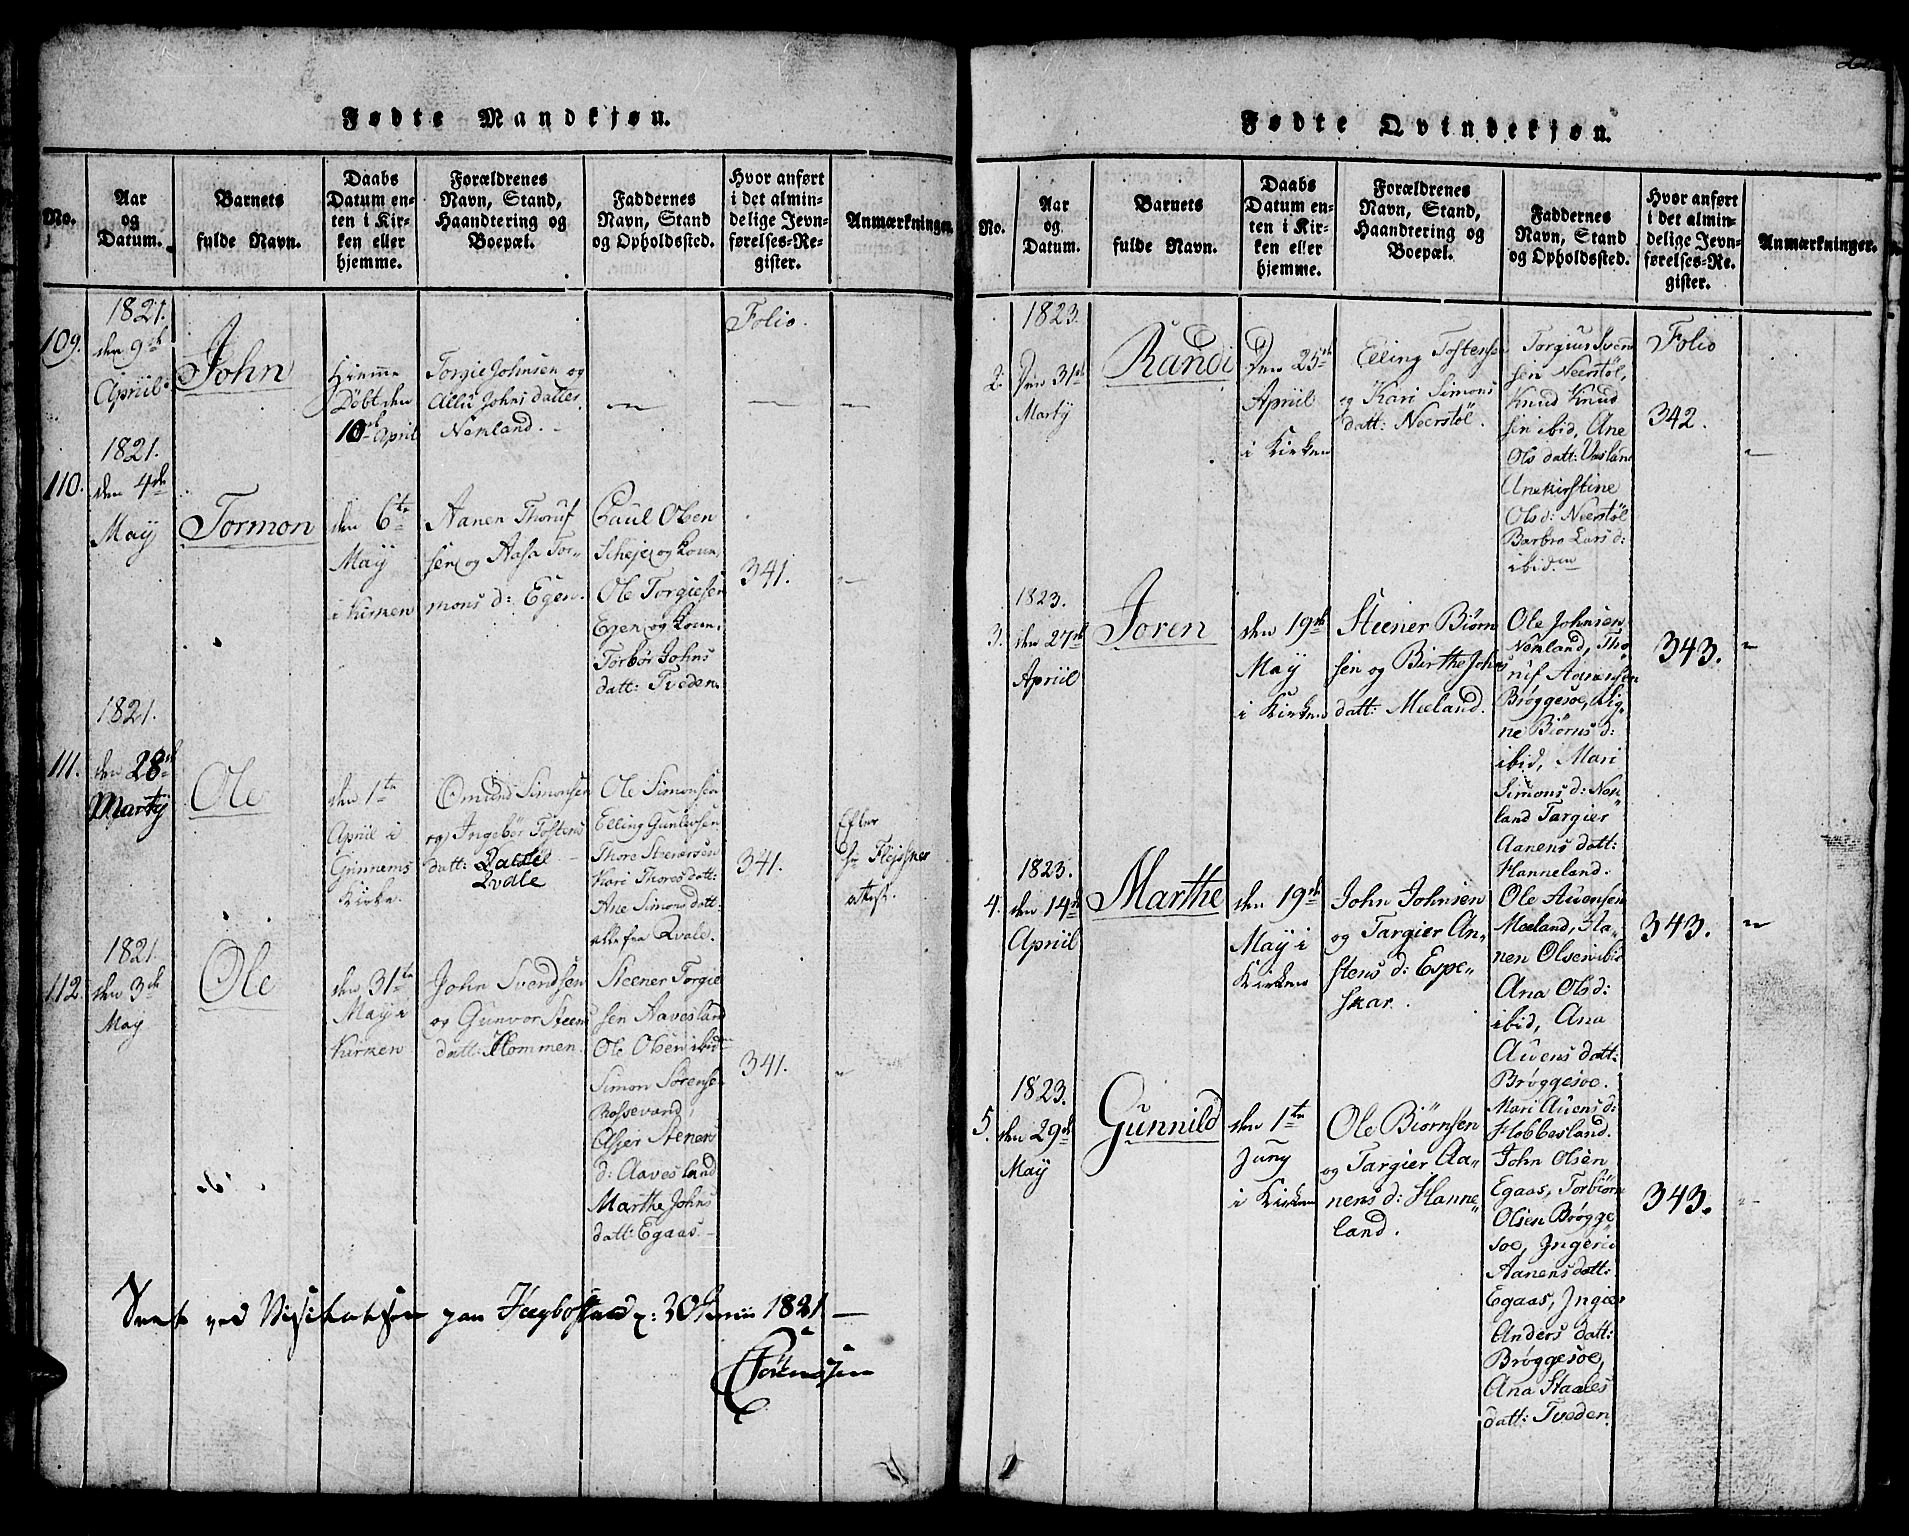 Fødte Mandkjøn.
No.
Aar
og
Datum.
Barnets
fulde Navn.
Daabs
Datum en-
ten i Kir-
ken eller
hjemme.
Forældrenes
Navn, Stand,
Haandtering og
Boepæl.
Faddernes
Navn, Stand
og Opholdssted.
Hvor anført
i det almin-
delige Jevn-
førelses-Re-
gister.
Anmærkninger.
109.
1821.
den 9de
Apriil
John
Hiemme
Døbt den
10de April
Torgie Johnsen og
Allü Johns datter
Nemland.
—
Folio.
—
—
110.
1821.
den 4de
Maÿ
Tormon
den 6te
Maÿ
i Kirken
Aanen Thoruf
sen og Aasa Tor-
mons d: Egen.
Paul Olsen
Scheje og Kone,
Ole Torgiesen
Egen og Kone,
Torbør Johns
datt: Tveden.
341.
—
111.
1821.
den 28de
Martÿ
Ole
den 1te
Apriil i
Grinnems
Kirke
Omund Simonsen
og Ingebør Tostens
datt: Qvalle
Qvale
Ole Simonsen
Elling Gunlevsen
Thore Steenersen
Kari Thores datt:
Ane Simons datt:
alle fra Qvale.
341.
Efter
Hr Flejsner
attest.
112.
1821.
den 3de
May
Ole
den 31te
Maÿ i
Kirken
John Svendsen
og Gunvor Steens
datt: Hommen.
Steener Torgie
sen Aavesland
Ole Olsen ibid
Simon Sørensen
Rossevand,
Asjer Steners
d: Aavesland
Marthe Johns
datt: Egaas.
341.
"
Seet ved Visitatsen paa Hægbostad d: 30 Junii 1821 —
Sørenssen
Fødte Qvindekjøn.
No.
Aar
og
Datum.
Barnets
fulde Navn.
Daabs
Datum en-
ten i Kir-
ken eller
hjemme.
Forældrenes
Navn, Stand,
Haandtering og
Boepæl.
Faddernes
Navn, Stand
og Opholdssted.
Hvor anført
i det almin-
delige Jevn-
førelses-Re-
gister.
Anmærkninger.
2.
1823.
Den 31te
Martÿ
Randi
Den 25de
Apriil
i Kirken
Elling Tostensen
og Kari Simons
datt: Neerstöl.
Torgius Sven
sen Neerstöl,
Knud Knud
sen ibid, Ane
Ols datt: Vasland
Anekirstine
Ols d: Neerstöl
Barbro Lars d:
ibidem
Folio
342.
—
3.
1823.
den 27de
Apriil
Joren
den 19de
May
i Kirken
Steener Biørn
sen og Birthe Johns
datt: Meeland.
Ole Johnsen
Nemland, Tho-
ruf Aanensen
Brøggesoe, Sig-
ne Biørns d:
ibid, Mari
Simons d: Nem-
land Targier
Aanens datt:
Hanneland.
343.
"
4.
1823.
den 14de
Apriil
Marthe
den 19de
May i
Kirken
John Johnsen
og Targier An-
stens d: Espe-
skar.
Ole Auensen
Meeland, Aa-
nen Olsen ibid
Ana Ols d:
ibid, Ana
Auens datt:
Brøggesoe.
343.
"
5.
1823.
den 29de
Maÿ
Gunnild
den 1te
Juny
i Kirken
Ole Biørnsen
og Targier Aa-
nens d: Hanne-
land.
Mari Auens d:
Flobbesland.
John Olsen
Egaas, Torbiørn
Olsen Brøgge
soe, Ingeri
Aanens datt:
Egaas, Ingær
Anders datt:
Brøggesoe,
Ana Staales
datt: Tveden.
343.
"